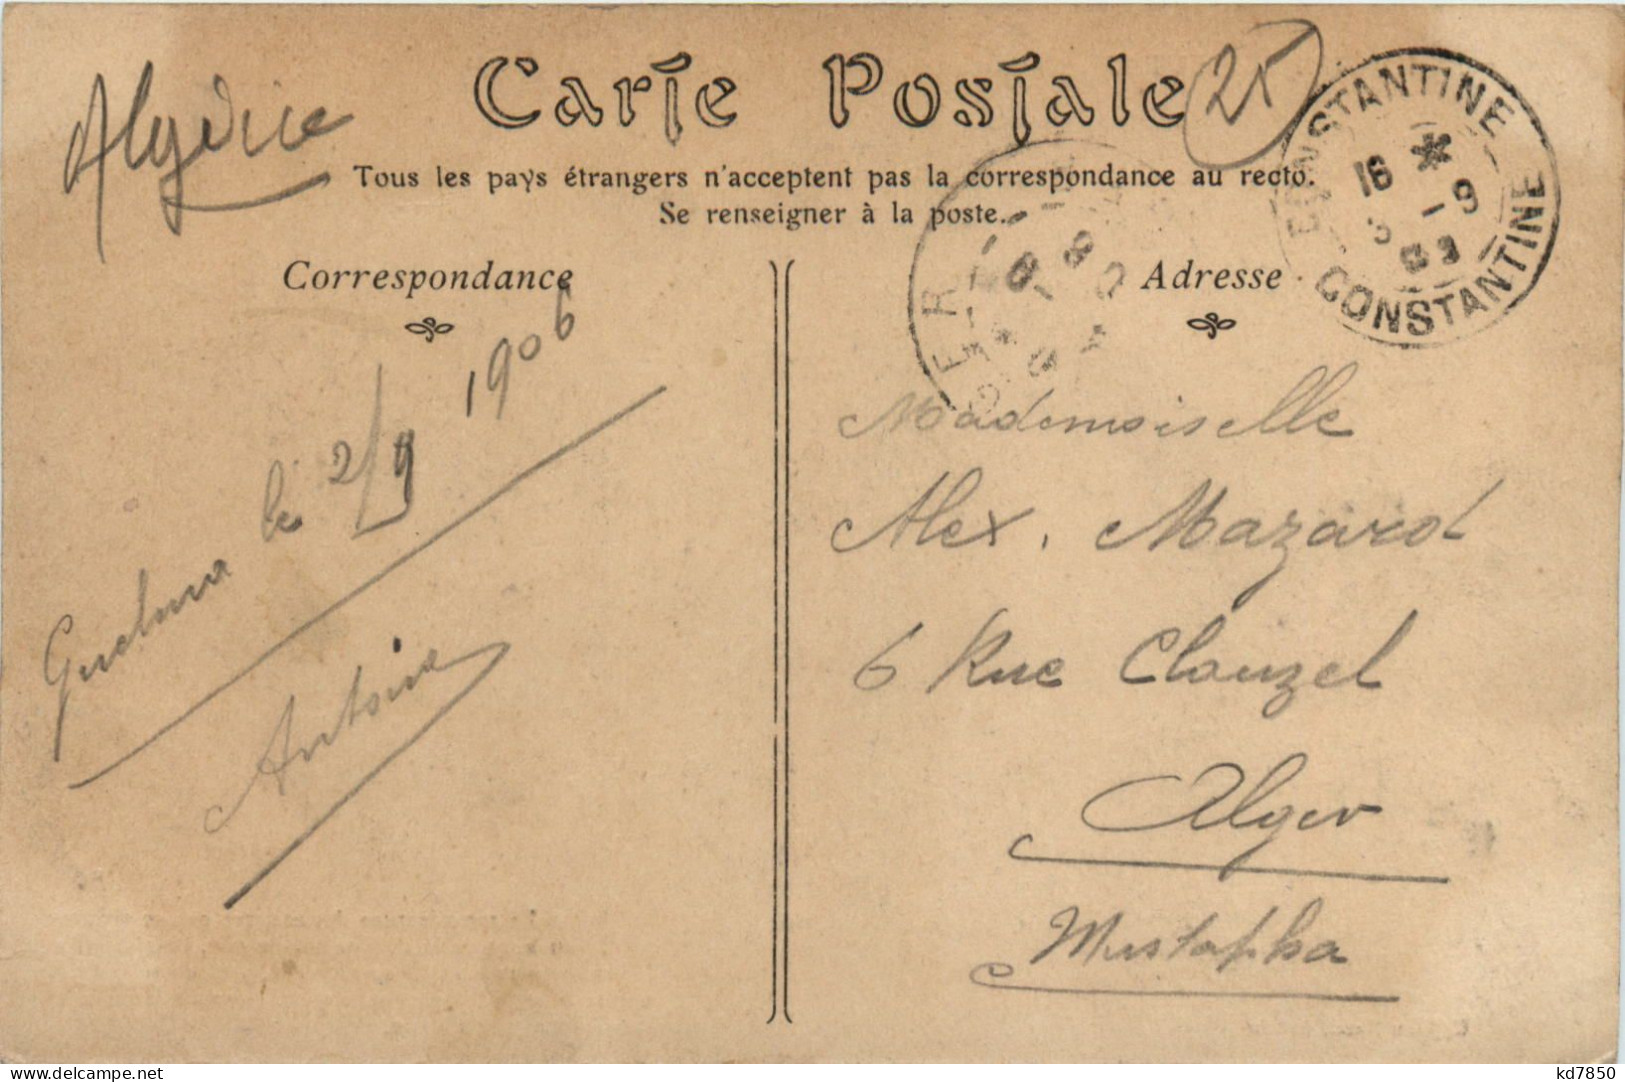 Algérie
Carte Postale
25
Tous les pays étrangers n'acceptent pas la correspondance au recto.
Se renseigner à la poste.
CONSTANTINE
16 * 9
CONSTANTINE
Correspondance
Guelma le 2/9 1906
Antoine
Adresse
Mademoiselle
Alex. Mazarol
6 Rue Clauzel
Alger
Mustapha
delcampe.net
kd7850